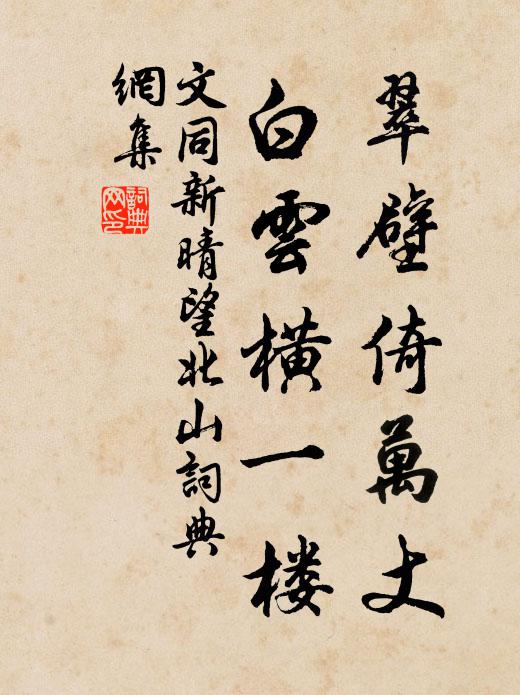 翠壁倚萬丈
白雲橫一楼
文同新晴望北山詞典
網集
詞典網印